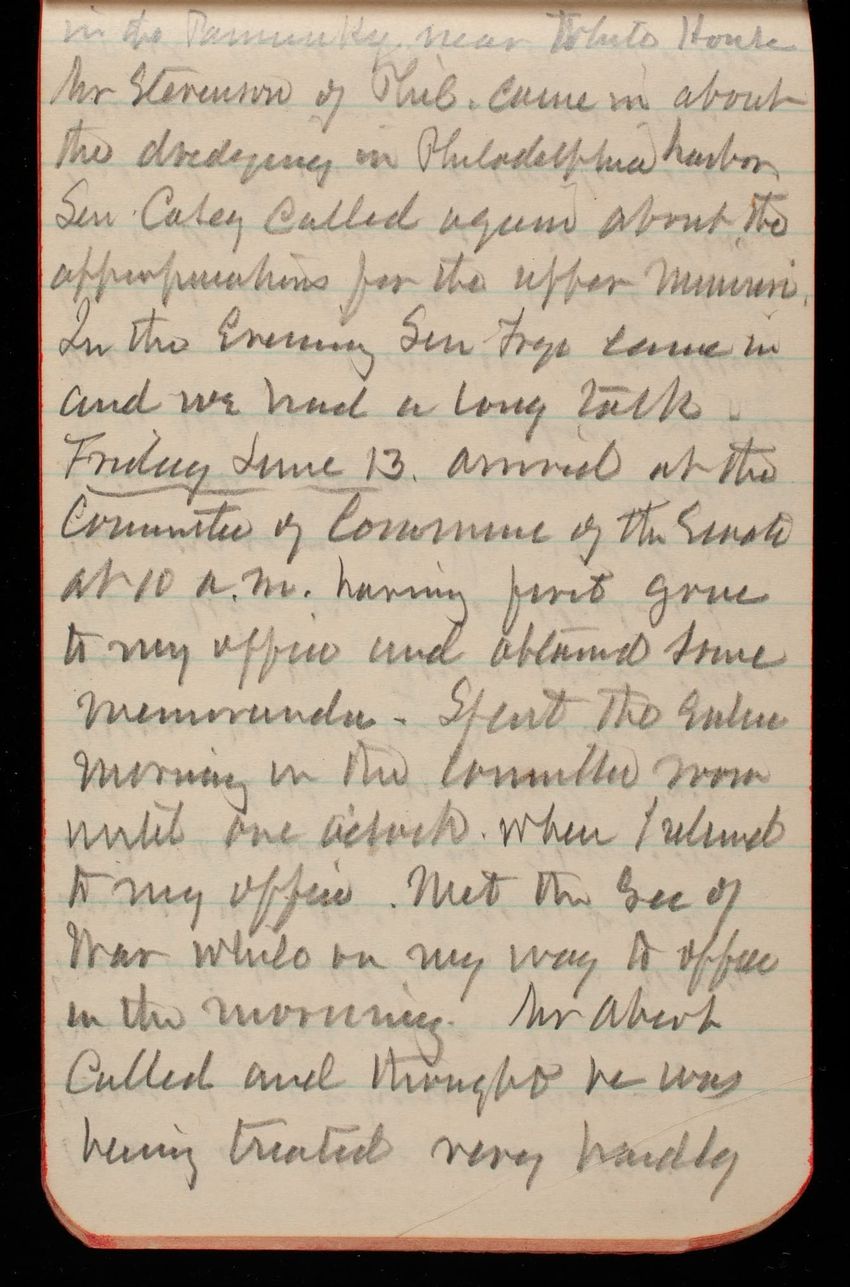 in the Pamunky near White House
Mr Stevenson of Phil. came in about
the dredging in Philadelphia harbor
Sen Casey called again about the
appropriations for the upper Missouri.
In the Evening Sen Frye came in
and we had a long talk.
Friday June 13. arrived at the
Committee of Commerce of the Senate
at 10 a.m. having first gone
to my office and obtained some
memoranda - Spent the entire
morning in the Committee room
until one o'clock. when I returned
to my office. Met the Sec of
War while on my way to office
in the morning. Mr Abert
called and thought he was
being treated very hardly